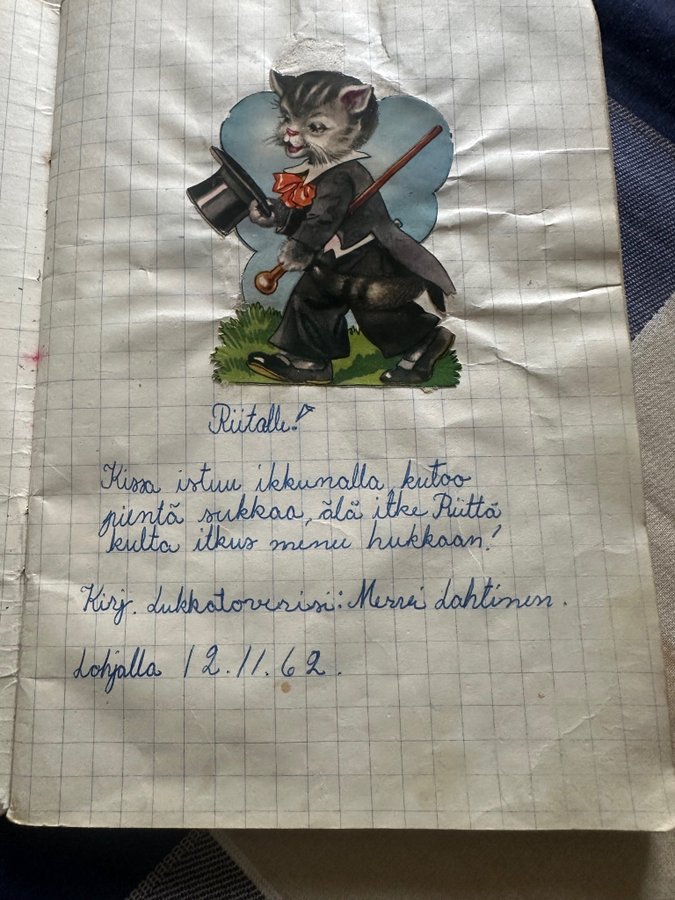 Riitalle!
Kissa istuu ikkunalla, kutoo
pientä sukkaa, älä itke Riitta
kulta itkus menee hukkaan!
Kirj. Luokkatoverisi: Mervi Lahtinen.
Lohjalla 12.11.62.